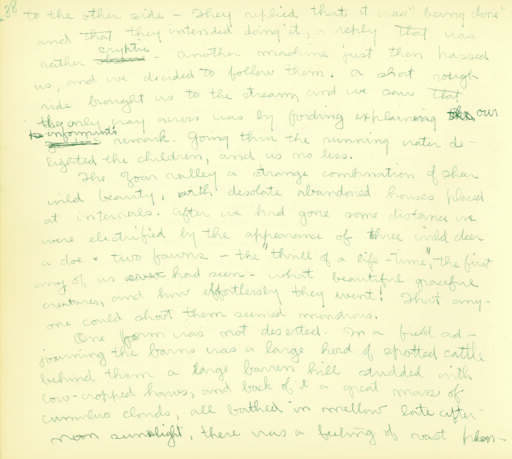 38
to the other side - They replied that it was "being done"
and that they intended doing it, a reply that was
rather cryptic. Another machine just then passed
us, and we decided to follow them. A short rough
ride brought us to the stream, and we saw that
the only way across was by fording explaining our
informant's remark. Going thru the running water de-
lighted the children, and us no less.
The Zoar valley a strange combination of shear
wild beauty, with desolate abandoned houses placed
at intervals. After we had gone some distance we
were electrified by the appearance of three wild deer
a doe & two fawns - the "thrill of a life-time", the first
any of us ever had seen - what beautiful graceful
creatures, and how effortlessly they went! That any-
one could shoot them seemed monstrous.
One farm was not deserted. In a field ad-
joining the barns was a large herd of spotted cattle
behind them a large barren hill studded with
cow-cropped haws, and back of it a great mass of
cumulus clouds, all bathed in mellow late after-
noon sunlight, there was a feeling of vast